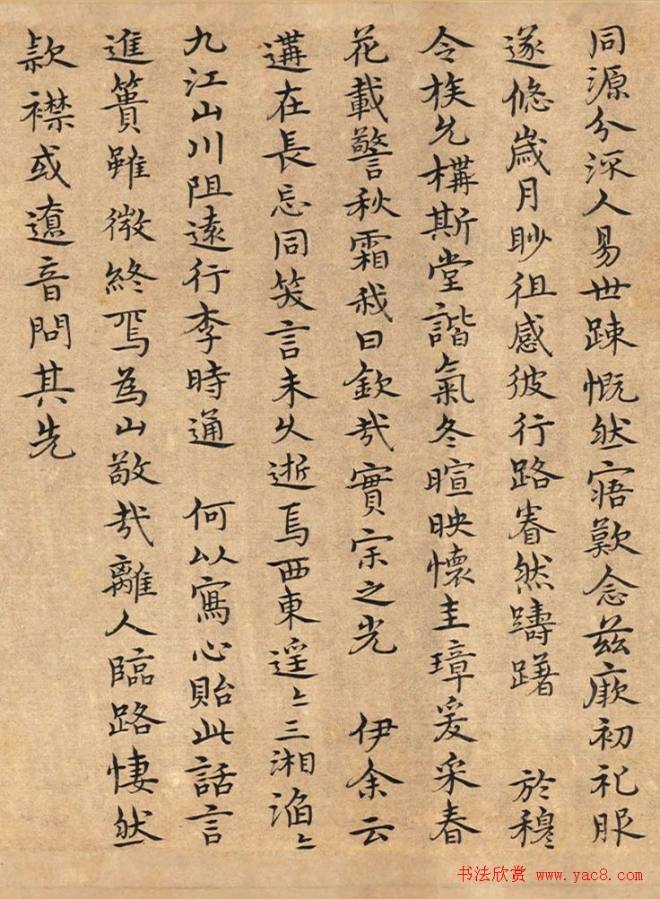 同源分流人易世踈慨然寤歎念兹厥初礼服
遂悠歲月眇徂感彼行路眷然躊躇 於穆
令族允構斯堂諧氣冬暄映懷圭璋爰采春
花載警秋霜我曰欽哉實宗之光 伊余云
遘在長忘同笑言未久逝焉西東遥〻三湘滔〻
九江山川阻遠行李時通 何以寫心貽此話言
進簣雖微終焉為山敬哉離人臨路悽然
款襟或遼音問其先
书法欣赏 www.yac8.com